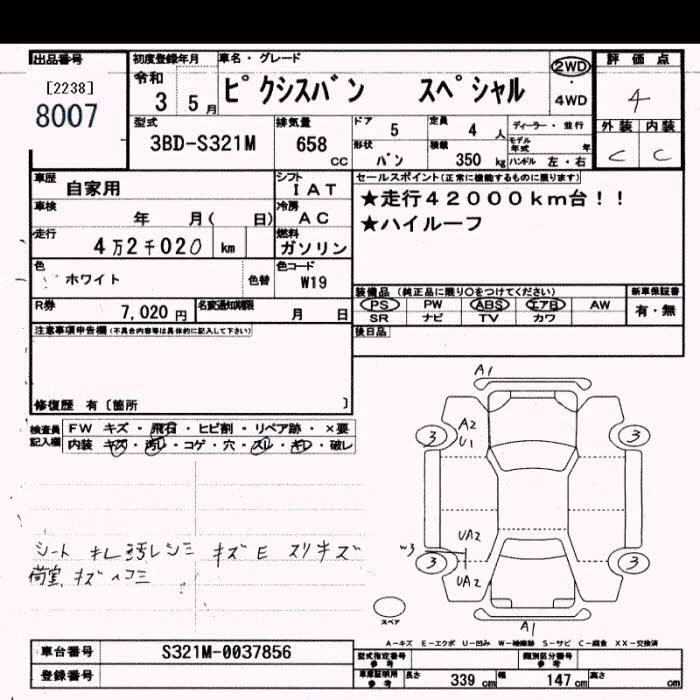 出品番号 初度登録年月 車名・グレード 評価点
[2238] 8007
令和 3 5月 ピクシスバン スペシャル 2WD・4WD 4
型式 3BD-S321M 排気量 658 CC
ドア 5 定員 4人 ディーラー・並行
形状 バン 積載 350 kg モデル年式 年 ハンドル 左・右
外装 内装
C C
車歴 自家用 シフト IAT
車検 年 月( 日) 冷房 AC
走行 4万2千020 km 燃料 ガソリン
色 ホワイト 色替 色コード W19
R券 7,020円 名変通知期限 月 日
セールスポイント(正常に機能するものに限ります)
★走行42000km台!!
★ハイルーフ
装備品(純正品に限り○をつけてください) 新車保証書
PS PW ABS エアB AW 有・無
SR ナビ TV カワ
後日品
注意事項申告欄(不具合内容等は具体的に記入して下さい)
修復歴 有〔箇所 〕
検査員記入欄
FW キズ・飛石・ヒビ割・リペア跡・×要
内装 キズ・汚レ・コゲ・穴・スレ・キレ・破レ
シート キレ 汚レシミ キズ E スリキズ
荷室 キズ ヘコミ
A1
A2
U1
3 3
UA2
W3
3 3
UA2
A1
スペア
A-キズ E-エクボ U-凹み W-補修跡 S-サビ C-腐食 XX-交換済
車台番号 S321M-0037856
登録番号
型式指定番号 参考 類別区分番号 参考
車庫証明用 参考 長さ 339 cm 幅 147 cm 高さ cm